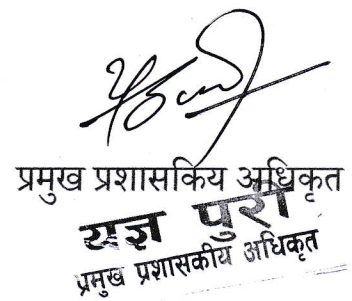 प्रमुख प्रशासकिय अधिकृत
यज्ञ पुरी
प्रमुख प्रशासकीय अधिकृत